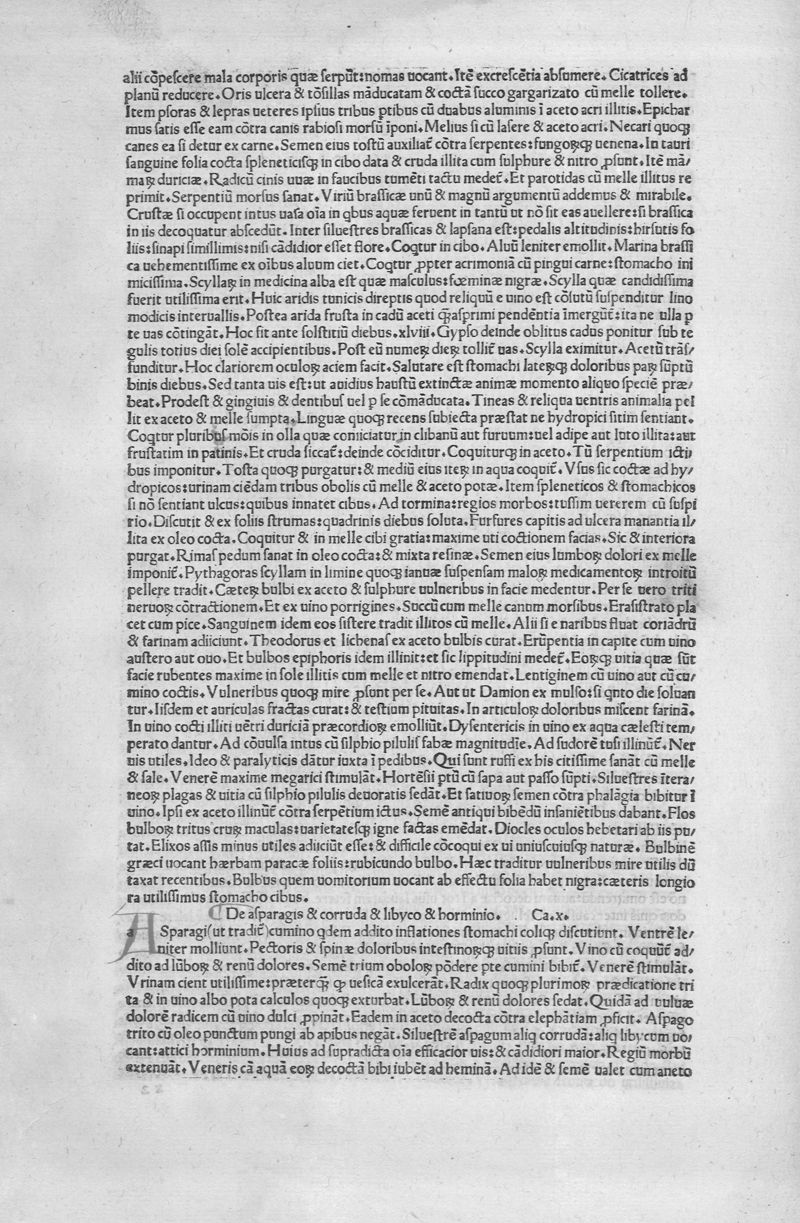 alii cōpescere mala corporis quæ serpūt:nomas uocant.Itē excrescētia absumere.Cicatrices ad
planū reducere.Oris ulcera & tōsillas māducatam & coctā succo gargarizato cū melle tollere.
Item psoras & lepras ueteres ipsius tribus ptibus cū duabus aluminis ī aceto acri illitis.Epichar
mus satis esse eam cōtra canis rabiosi morsū īponi.Melius si cū lasere & aceto acri.Necari quoqꝫ
canes ea si detur ex carne.Semen eius tostū auxiliať cōtra serpentes:fungosqꝫ uenena.In tauri
sanguine folia cocta spleneticisqꝫ in cibo data & cruda illita cum sulphure & nitro ꝓsunt.Itē mā/
maꝝ duriciæ.Radicū cinis uuæ in faucibus tumēti tactu medeť.Et parotidas cū melle illitus re
primit.Serpentiū morsus sanat.Viriū brassicæ unū & magnū argumentū addemus & mirabile.
Crustæ si occupent intus uasa oīa in qbus aquæ feruent in tantū ut nō sit eas auellere:si brassica
in iis decoquatur abscedūt.Inter siluestres brassicas & lapsana est:pedalis altitudinis:hirsutis fo
liis:sinapi simillimis:nisi cādidior esset flore.Coqtur in cibo.Aluū leniter emollit.Marina brassi
ca uehementissime ex oībus aluum ciet.Coqtur ꝓpter acrimoniā cū pingui carne:stomacho ini
micissima.Scyllaꝝ in medicina alba est quæ masculus:fœminæ nigræ.Scylla quæ candidissima
fuerit utilissima erit.Huic aridis tunicis direptis quod reliquū e uiuo est cōsutū suspenditur lino
modicis interuallis.Postea arida frusta in cadū aceti qꝫasprimi pendētia īmergūť:ita ne ulla p
te uas cōtingāt.Hoc fit ante solstitiū diebus.xlviii.Gypso deinde oblitus cadus ponitur sub te
gulis totius diei solē accipientibus.Post eū numeꝝ dieꝝ tolliť uas.Scylla eximitur.Acetū trās/
funditur.Hoc clariorem oculoꝝ aciem facit.Salutare est stomachi lateꝝqꝫ doloribus paꝝ sūptū
binis diebus.Sed tanta uis est:ut auidius haustū extinctæ animæ momento aliquo speciē præ/
beat.Prodest & gingiuis & dentibus uel p se cōmāducata.Tineas & reliqua uentris animalia pel
lit ex aceto & melle sumpta.Linguæ quoqꝫ recens subiecta præstat ne hydropici sitim sentiant.
Coqtur pluribus mōis in olla quæ coniiciatur in clibanū aut furnum:uel adipe aut luto illita:aut
frustatim in patinis.Et cruda siccať:deinde cōciditur.Coquiturqꝫ in aceto.Tū serpentium icti/
bus imponitur.Tosta quoqꝫ purgatur:& mediū eius iteꝝ in aqua coquiť.Vsus sic coctæ ad hy/
dropicos:urinam ciēdam tribus obolis cū melle & aceto potæ.Item spleneticos & stomachicos
si nō sentiant ulcus:quibus innatet cibus.Ad tormina:regios morbos:tussim ueterem cū suspi
rio.Discutit & ex foliis strumas:quadrinis diebus soluta.Furfures capitis ad ulcera manantia il/
lita ex oleo cocta.Coquitur & in melle cibi gratia:maxime uti coctionem facias.Sic & interiora
purgat.Rimas pedum sanat in oleo cocta:& mixta resinæ.Semen eius lumboꝝ dolori ex melle
imponiť.Pythagoras scyllam in limine quoqꝫ ianuæ suspensam maloꝝ medicamentoꝝ introitū
pellere tradit.Cæteꝝ bulbi ex aceto & sulphure uulneribus in facie medentur.Per se uero triti
neruoꝝ cōtractionem.Et ex uino porrigines.Succū cum melle canum morsibus.Erasistrato pla
cet cum pice.Sanguinem idem eos sistere tradit illitos cū melle.Alii si e naribus fluat coriādrū
& farinam adiiciunt.Theodorus et lichenas ex aceto bulbis curat.Erūpentia in capite cum uino
austero aut ouo.Et bulbos epiphoris idem illinit:et sic lippitudini medeť.Eoꝝqꝫ uitia quæ sūt
facie rubentes maxime in sole illitis cum melle et nitro emendat.Lentiginem cū uino aut cū cu/
mino coctis.Vulneribus quoqꝫ mire ꝓsunt per se.Aut ut Damion ex mulso:si qnto die soluan
tur.Iisdem et auriculas fractas curat:& testium pituitas.In articuloꝝ doloribus miscent farinā.
In uino cocti illiti uētri duriciā præcordioꝝ emolliūt.Dysentericis in uino ex aqua cælesti tem/
perato dantur.Ad cōuulsa intus cū silphio pilulis fabæ magnitudīe.Ad sudorē tusi illinūť.Ner
uis utiles.Ideo & paralyticis dātur iuxta ī pedibus.Qui sunt ruffi ex his citissime sanāt cū melle
& sale.Venerē maxime megarici stimulāt.Hortēsii ptū cū sapa aut passo sūpti.Siluestres ītera/
neoꝝ plagas & uitia cū silphio pilulis deuoratis sedāt.Et satiuoꝝ semen cōtra phalāgia bibitur ī
uino.Ipsi ex aceto illinūť cōtra serpētium ictus.Semē antiqui bibēdū insaniētibus dabant.Flos
bulboꝝ tritus cruꝝ maculas:uarietatesqꝫ igne factas emēdat.Diocles oculos hebetari ab iis pu/
tat.Elixos assis minus utiles adiiciūt esse:& difficile cōcoqui ex ui uniuscuiusqꝫ naturæ.Bulbinē
græci uocant hærbam paracæ foliis:rubicundo bulbo.Hæc traditur uulneribus mire utilis dū
taxat recentibus.Bulbus quem uomitorium uocant ab effectu folia habet nigra:cæteris longio
ra utilissimus stomacho cibus.
De asparagis & corruda & libyco & horminio. Ca.x.
ASparagi(ut tradiť)cumino qdem addito inflationes stomachi coliqꝫ discutiunt.Ventrē le/
niter molliunt.Pectoris & spinæ doloribus intestinoꝝqꝫ uitiis ꝓsunt.Vino cū coquūť ad/
dito ad lūboꝝ & renū dolores.Semē trium oboloꝝ pōdere pte cumini bibiť.Venerē stimulāt.
Vrinam cient utilissime:præterqꝫ qꝫ uesicā exulcerāt.Radix quoqꝫ plurimoꝝ prædicatione tri
ta & in uino albo pota calculos quoqꝫ exturbat.Lūboꝝ & renū dolores sedat.Quidā ad uuluæ
dolorē radicem cū uino dulci ꝓpināt.Eadem in aceto decocta cōtra elephātiam ꝓficit.Aspago
trito cū oleo punctum pungi ab apibus negāt.Siluestrē aspagum aliq corrudā:aliq libycum uo/
cant:attici horminium.Huius ad supradicta oīa efficacior uis:& cādidiori maior.Regiū morbū
extenuāt.Veneris cā aquā eoꝝ decoctā bibi iubēt ad heminā.Ad idē & semē ualet cum aneto